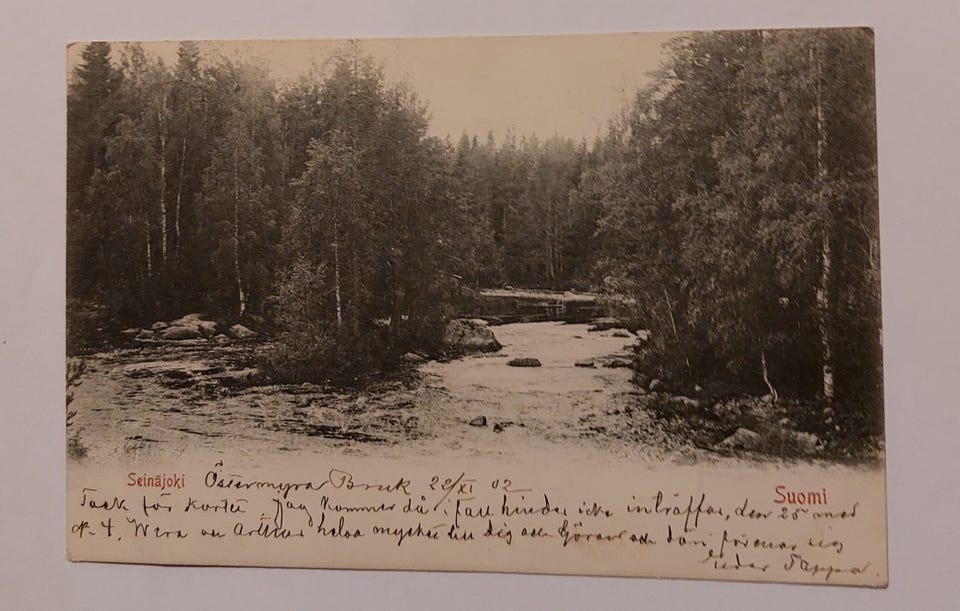 Seinäjoki Östermyra Bruk 22/XI 02
Suomi
Tack för kortet Jag kommer då i fall hinder icke inträffar, den 25 med
kl. 4. Wera och Arthur helsa mycket till Dig och Göran och
Pappa